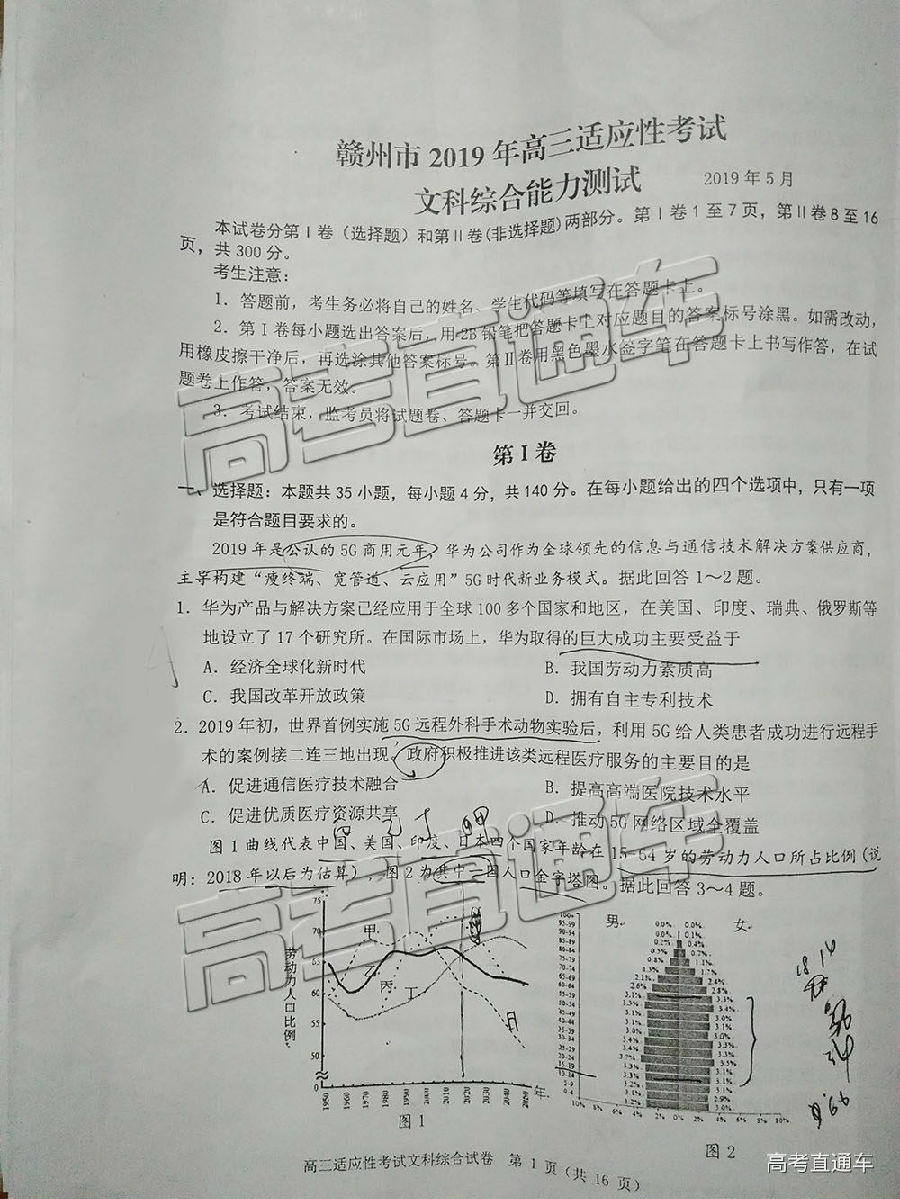 赣州市2019年高三适应性考试
文科综合能力测试
2019年5月
本试卷分第Ⅰ卷(选择题)和第Ⅱ卷(非选择题)两部分。第Ⅰ卷1至7页,第Ⅱ卷8至16
页,共300分。
考生注意:
1.答题前,考生务必将自己的姓名、学生代码等填写在答题卡上。
2.第Ⅰ卷每小题选出答案后,用2B铅笔把答题卡上对应题目的答案标号涂黑。如需改动,
用橡皮擦干净后,再选涂其他答案标号。第Ⅱ卷用黑色墨水签字笔在答题卡上书写作答,在试
题卷上作答,答案无效。
3.考试结束,监考员将试题卷、答题卡一并交回。
高考直通车
第Ⅰ卷
一、选择题:本题共35小题,每小题4分,共140分。在每小题给出的四个选项中,只有一项
是符合题目要求的。
2019年是公认的5G商用元年,华为公司作为全球领先的信息与通信技术解决方案供应商,
主导构建“瘦终端、宽管道、云应用”5G时代新业务模式。据此回答1~2题。
1.华为产品与解决方案已经应用于全球100多个国家和地区,在美国、印度、瑞典、俄罗斯等
地设立了17个研究所。在国际市场上,华为取得的巨大成功主要受益于
A.经济全球化新时代
B.我国劳动力素质高
C.我国改革开放政策
D.拥有自主专利技术
2.2019年初,世界首例实施5G远程外科手术动物实验后,利用5G给人类患者成功进行远程手
术的案例接二连三地出现,政府积极推进该类远程医疗服务的主要目的是
A.促进通信医疗技术融合
B.提高高端医院技术水平
C.促进优质医疗资源共享
D.推动5G网络区域全覆盖
图1曲线代表中国、美国、印度、日本四个国家年龄在15-64岁的劳动力人口所占比例(说
明:2018年以后为估算),图2为其中一国人口金字塔图。据此回答3~4题。
高考直通车
劳动力人口比例
75
70
65
60
55
50
0
甲
乙
丙
丁
年
图1
男
女
10% 8% 6% 4% 2% 0% 2% 4% 6% 8% 10%
图2
高三适应性考试文科综合试卷 第1页(共16页)
高考直通车